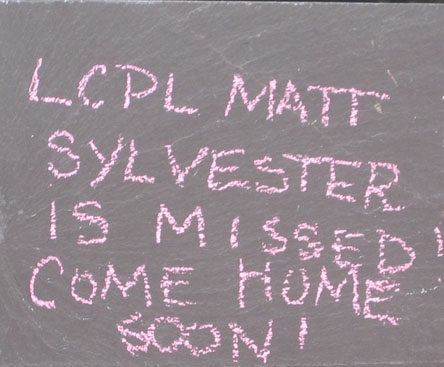 LCPL MATT
SYLVESTER
IS MISSED!
COME HOME
SOON!